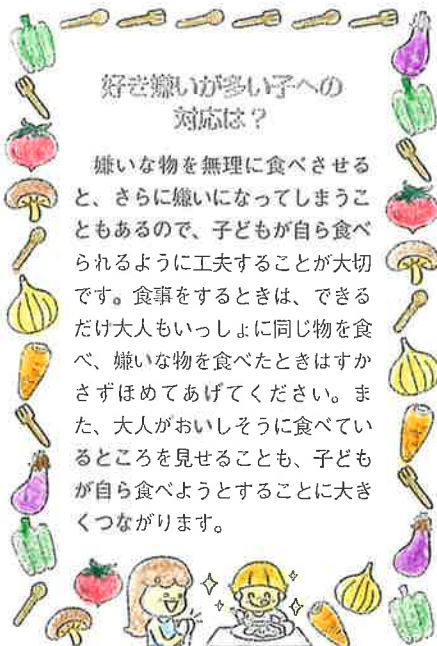 好き嫌いが多い子への
対応は？
嫌いな物を無理に食べさせる
と、さらに嫌いになってしまうこ
ともあるので、子どもが自ら食べ
られるように工夫することが大切
です。食事をするときは、できる
だけ大人もいっしょに同じ物を食
べ、嫌いな物を食べたときはすか
さずほめてあげてください。ま
た、大人がおいしそうに食べてい
るところを見せることも、子ども
が自ら食べようとすることに大き
くつながります。